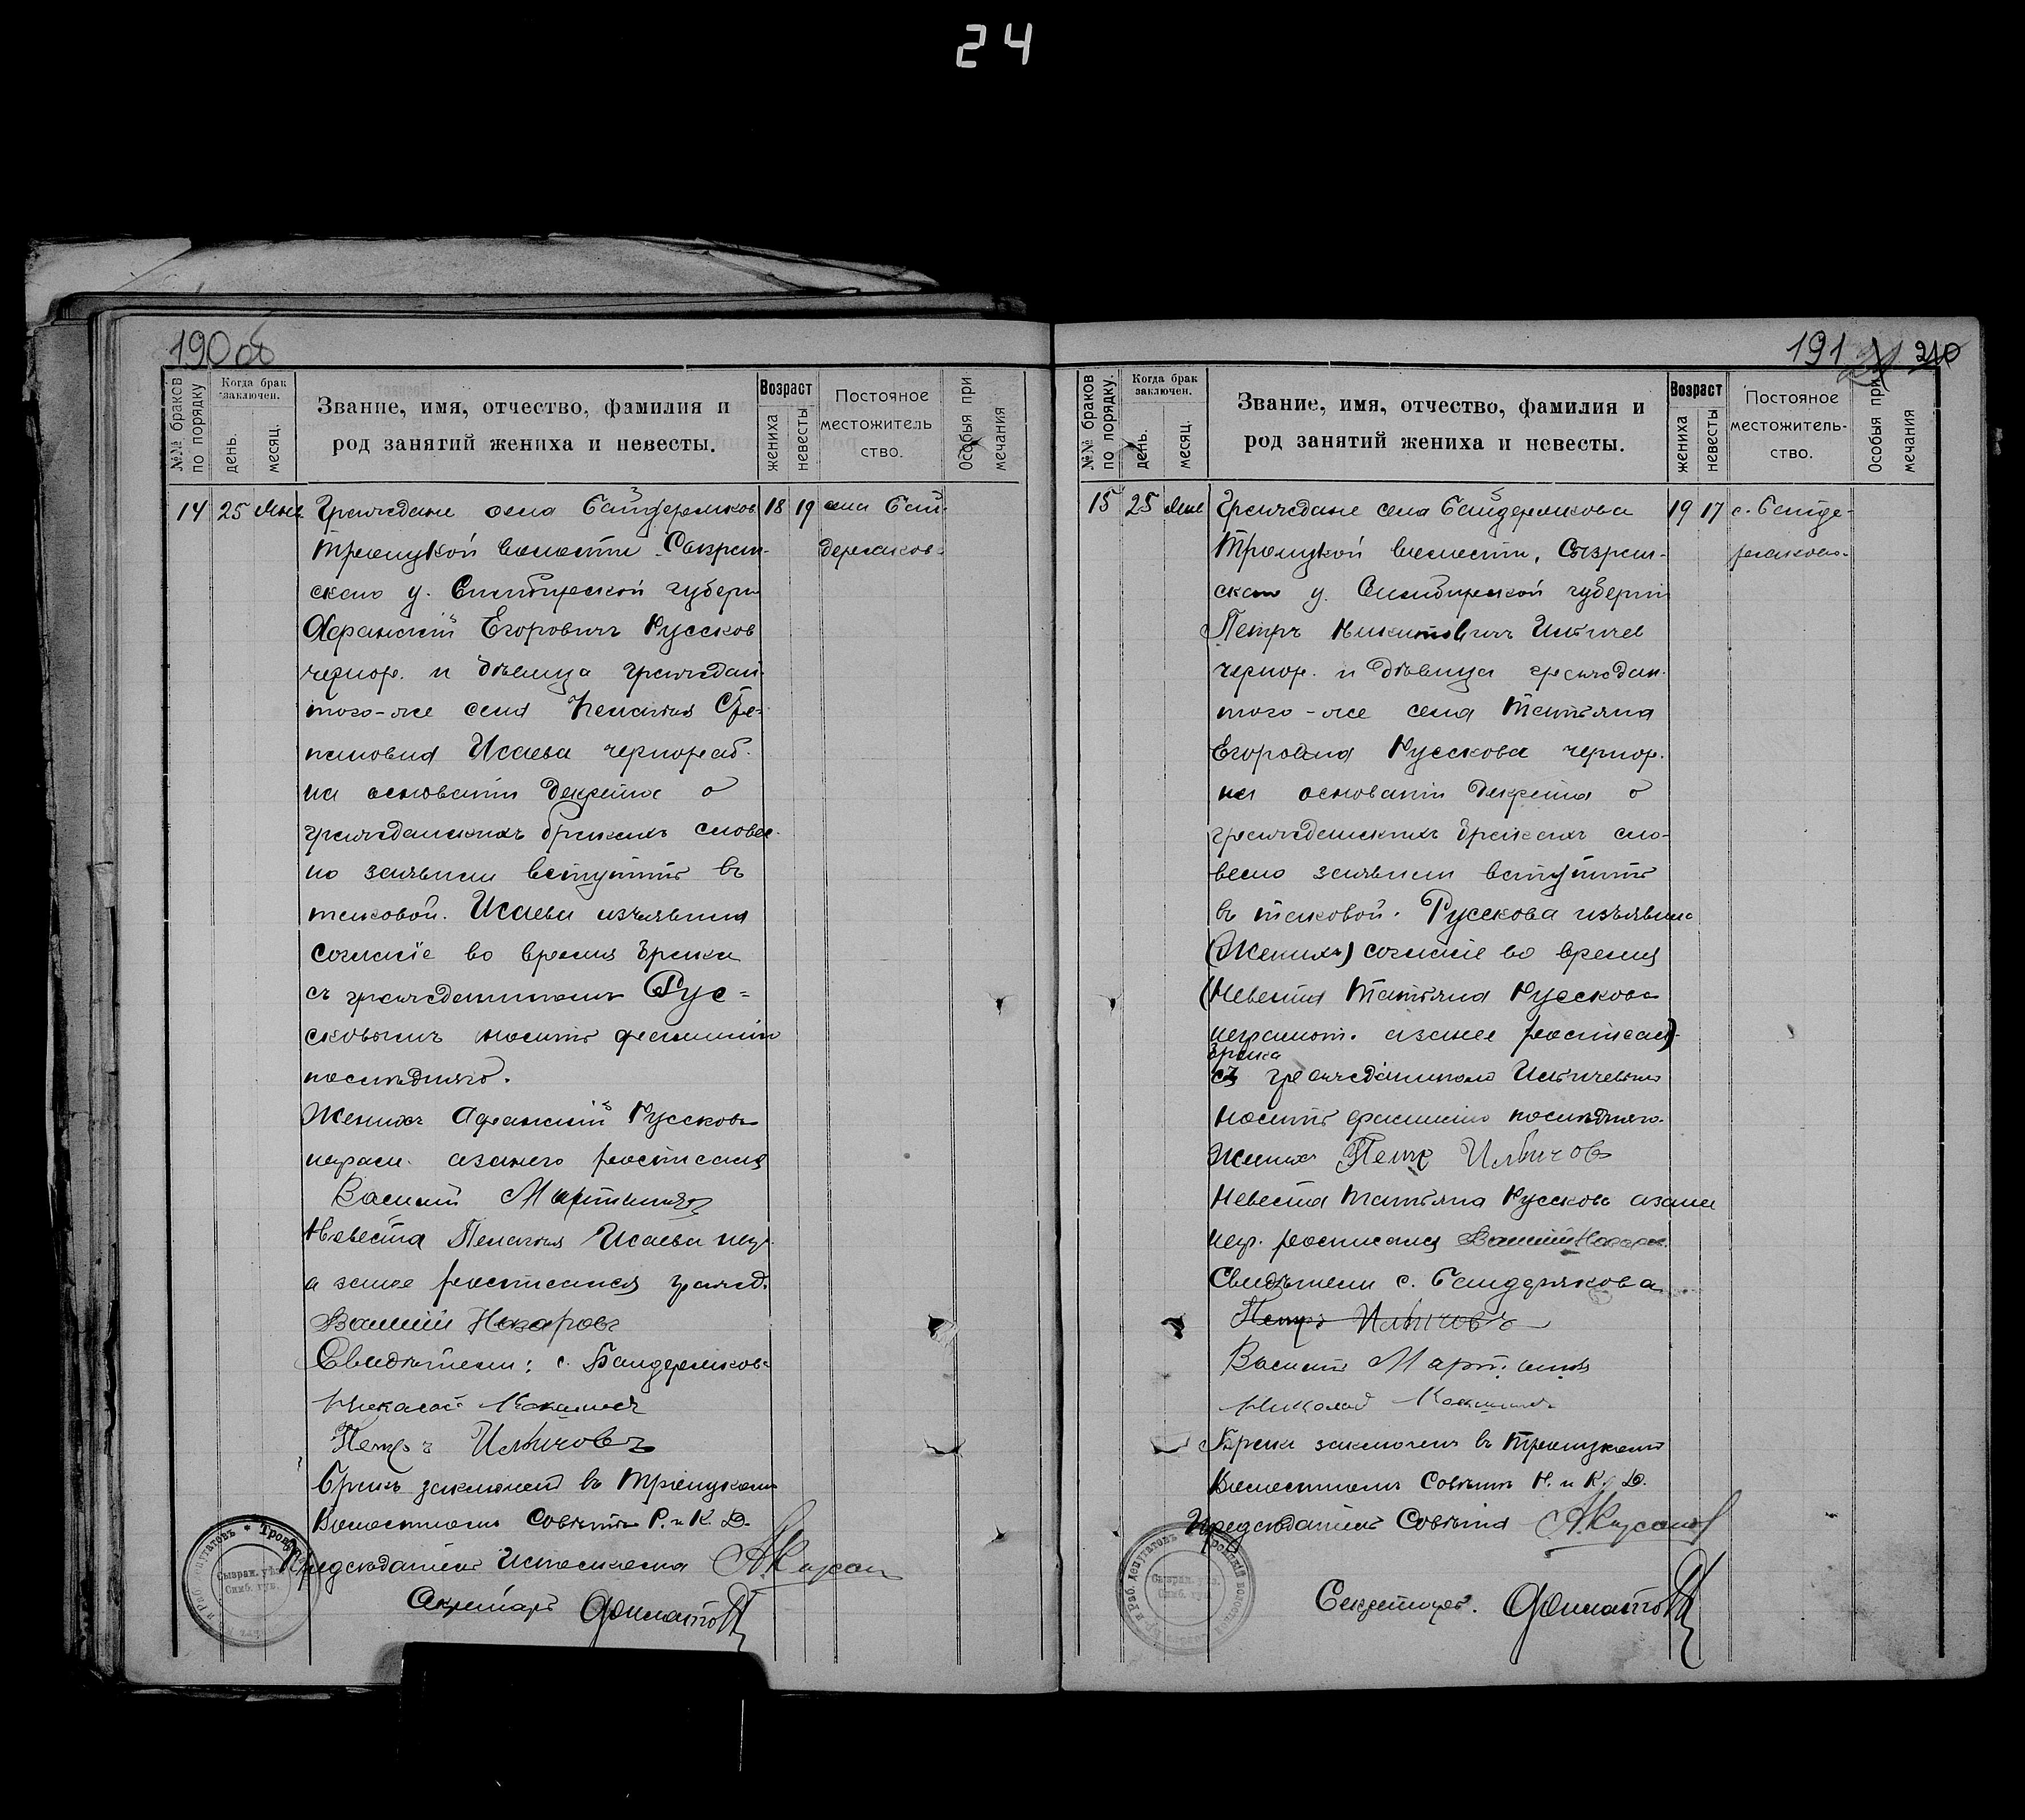 24
190 об
№№ браков по порядку
Когда брак заключен.
день.
месяц.
Звание, имя, отчество, фамилия и
род занятий жениха и невесты.
Возраст
жениха
невесты
Постояное
местожитель
ство.
Особыя при
мечания
14 25 18 19 села Бай-
Граждане села Байдеряков
Троицкой волости Сызран-
дерякова
скаго у. Симбирской губерн
Афанасий Егорович Руссков
чернор. и девица граждан.
того-же села Пелагия Сте-
пановна Исаева чернораб.
на основании декрета о
гражданских браках словес-
но заявили вступить въ
таковой. Исаева изъявила
согласие во время брака
съ гражданином Рус=
сковымъ носить фамилию
последняго.
Женихъ Афанасий Руссков
неграм. азанего росписался
Василий Мартынов
Невеста Пелагия Исаева негр.
а занее росписался гражд.
Василий Назаровъ
Свидетели: с. Байдеряков
Николай
Петръ Ильичовъ
Бракъ заключенъ въ Троицкомъ
Волостномъ Совете Р. и К. Д.
Председатель Исполкома
Секретарь
191 210
№№ браков по порядку.
Когда брак заключен.
день.
месяц.
Звание, имя, отчество, фамилия и
род занятий жениха и невесты.
Возраст
жениха
невесты
Постояное
местожитель-
ство.
Особыя при
мечания
15 25 19 17 с. Байде-
Граждане села Байдерякова
Троицкой волости, Сызран-
рякова
скаго у. Симбирской губерни
Петръ Никитовичъ Ильичев
чернор. и девица граждан.
того-же села Татьяна
Егоровна Русскова чернор.
на основании декрета о
гражданскихъ бракахъ сло-
весно заявили вступить
въ таковой. Русскова изъявила
(Женихъ) согласие во время
(Невеста Татьяна Русскова
неграмот. азанее росписал)
брака
съ гражданином Ильичевым
носить фамилию последняго.
Жених Петр Ильичов
Невеста Татьяна Русскова азанее
негр. росписался Василий Назаров.
Свидетели с. Байдерякова
Петръ Ильичовъ
Василий Мартынов
Николай
Бракъ заключенъ въ Троицкомъ
Волостномъ Совете Р. и К. Д.
Председатель Совета
Секретарь.